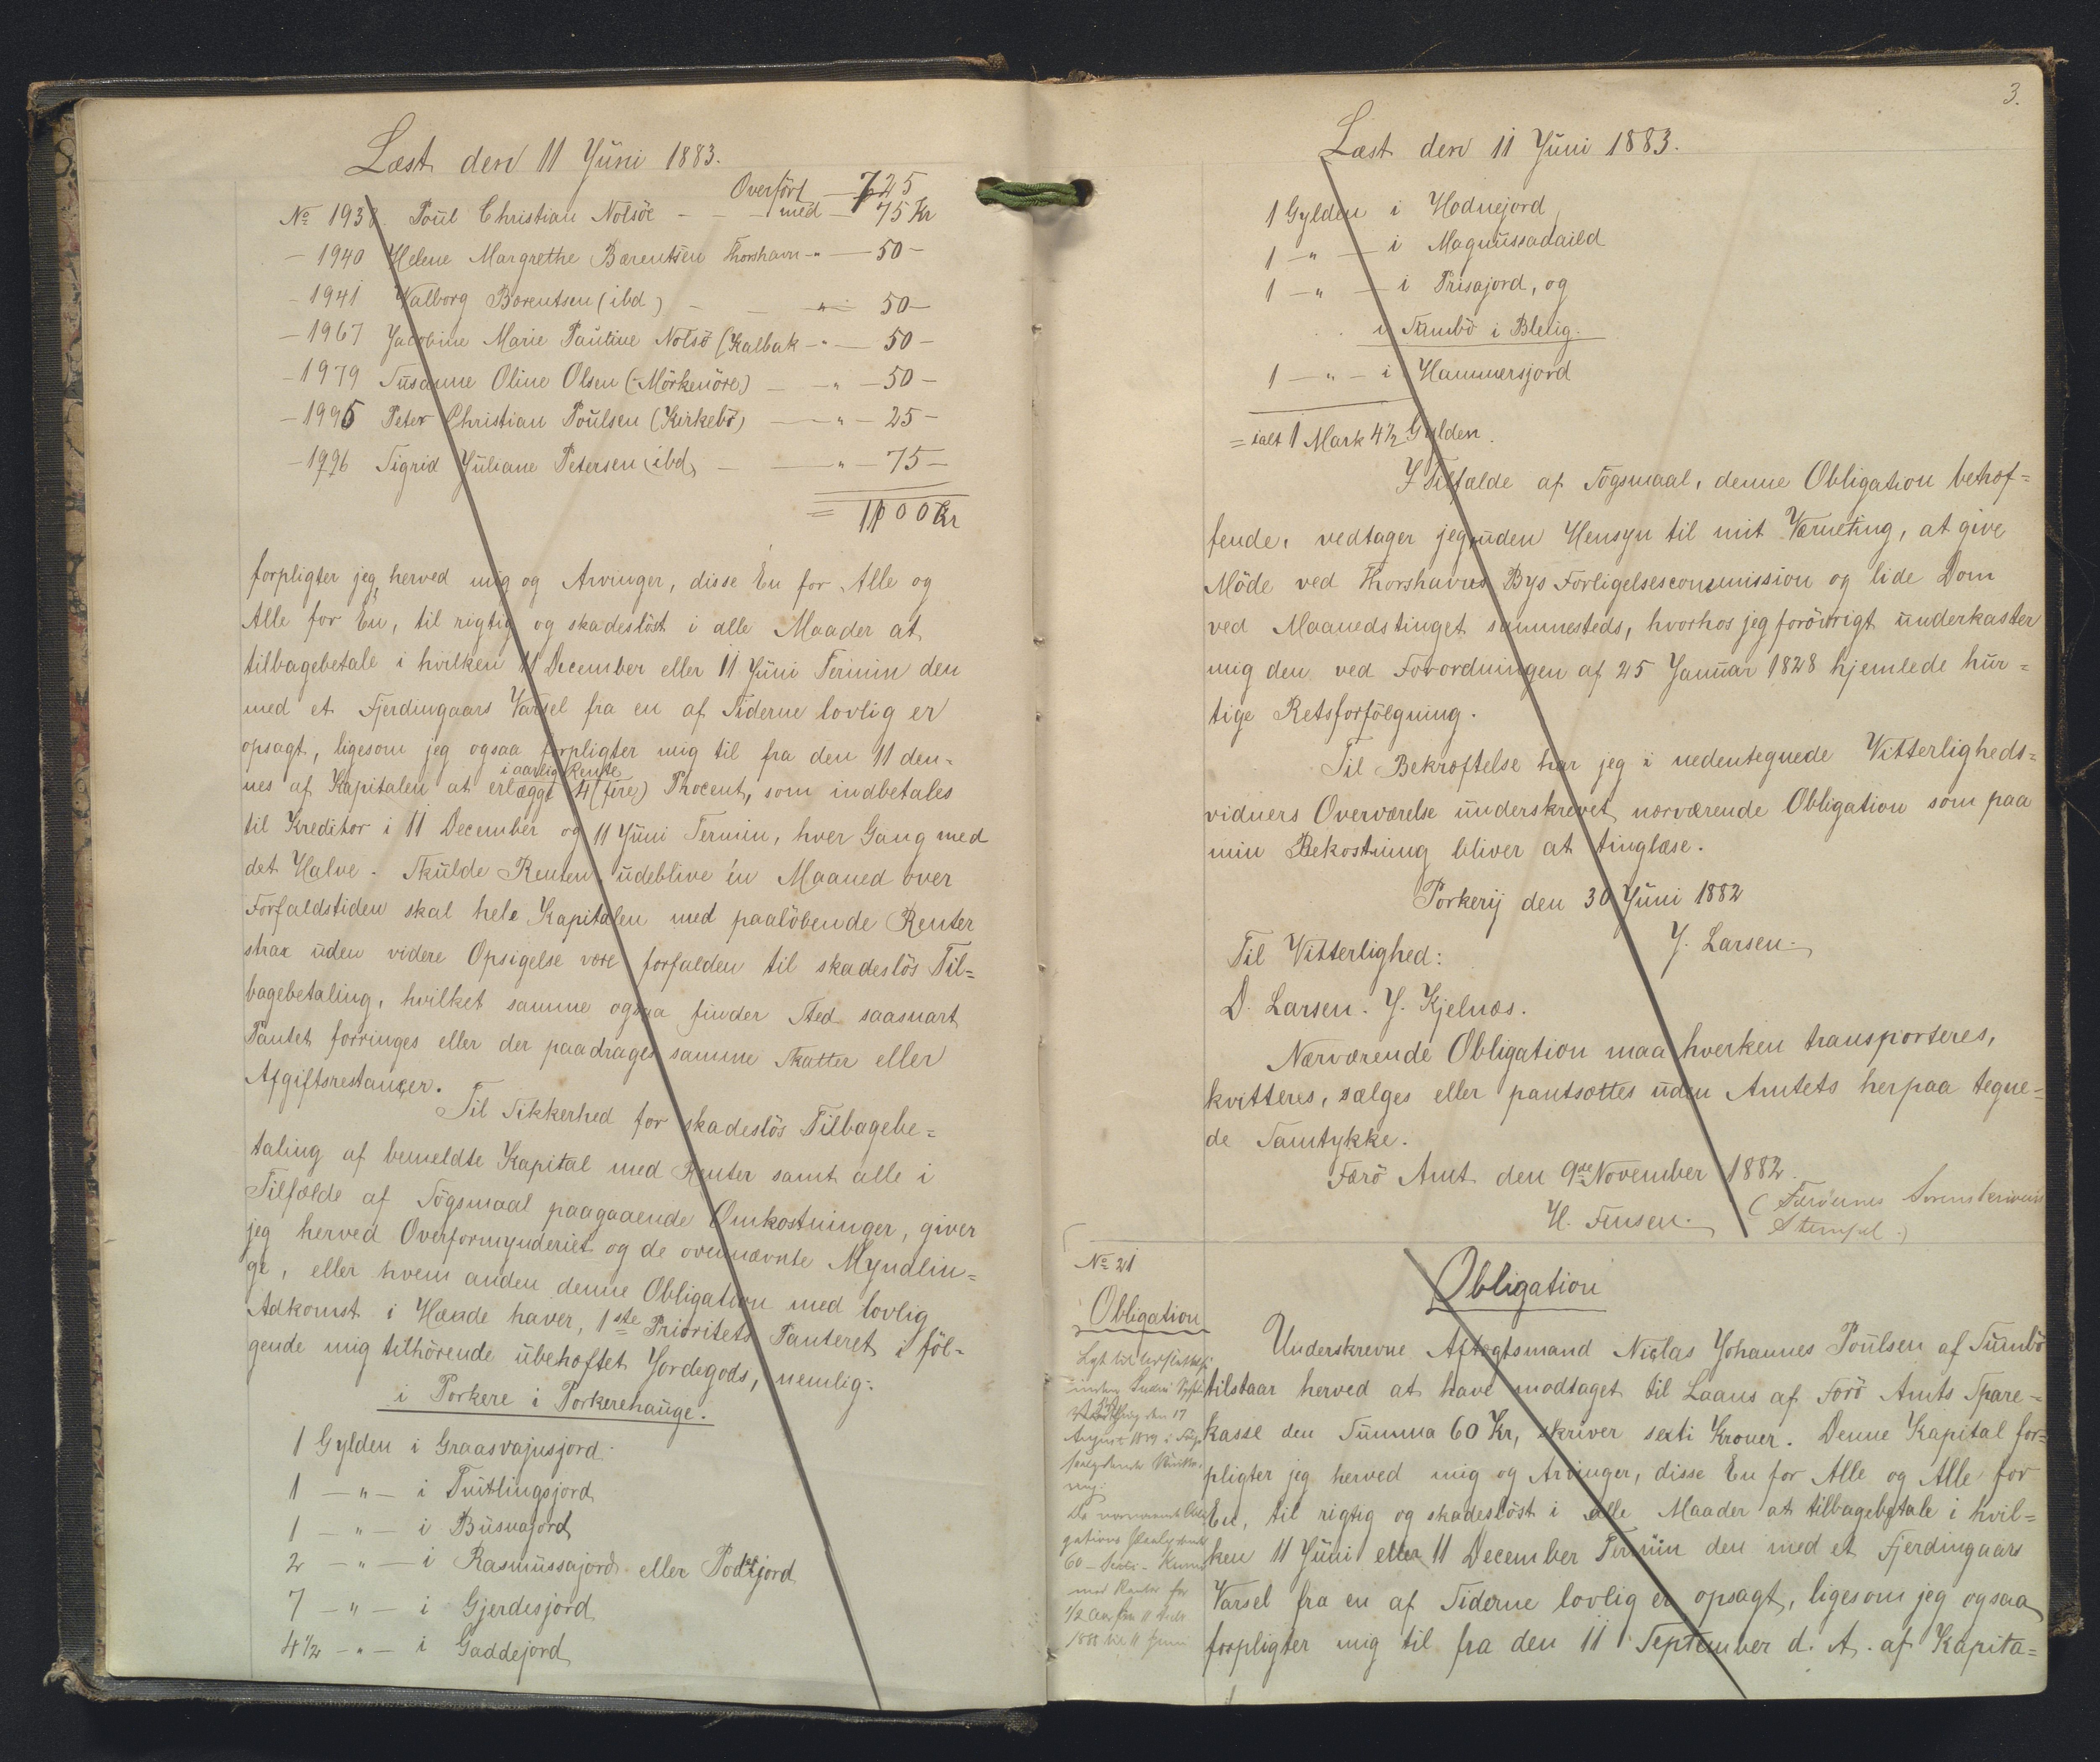 Læst den 11 Juni 1883.
Overført — 725
No 1938. Poul Christian Nolsöe — — med — 75 Kr
— 1940 Helene Margrethe Bærentsen Thorshavn - " — 50 —
— 1941 Valborg Bærentsen (ibd) — — " — 50 —
— 1967 Jacobine Marie Pauline Nolsö (Kalbak - " — 50 —
— 1979 Susanne Oline Olsen (Mörkenöre) — — " — 50 —
— 1995 Peter Christian Poulsen (Kirkebö) — — " — 25 —
— 1996 Sigrid Juliane Petersen (ibd) — — " — 75 —
= 1100 Kr
forpligter jeg herved mig og Arvinger, disse Én for Alle og
Alle for Én, til rigtig og skadesløst i alle Maader at
tilbagebetale i hvilken 11 December eller 11 Juni Termin den
med et Fjerdingaars Varsel fra en af Siderne lovlig er
opsagt, ligesom jeg ogsaa forpligter mig til fra den 11 den-
i aarlig Rente
nes af Kapitalen at erlægge 4 (fire) Procent, som indbetales
til Kreditor i 11 December og 11 Juni Termin, hver Gang med
det Halve. Skulde Renten udeblive én Maaned over
Forfaldstiden skal hele Kapitalen med paalöbende Renter
strax uden videre Opsigelse være forfalden til skadeslös Til=
bagebetaling, hvilket samme ogsaa finder Sted saasnart
Pantet forringes eller der paadrages samme Skatter eller
Afgiftsrestancer.
Til Sikkerhed for skadeslös Tilbagebe=
taling af bemeldte Kapital med Renter samt alle i
Tilfælde af Sögsmaal paagaaende Omkostninger, giver
jeg herved Overformynderiet og de ovennævnte Myndlin=
ge, eller hvem anden denne Obligation med lovlig
Adkomst i Hænde haver, 1ste Prioritets Panteret i föl-
gende mig tilhörende ubehæftet Jordegods, nemlig:
i Porkere i Porkerehauge.
1 Gylden i Graasvajnsjord
1 — " — i Tuitlingsjord
1 — " — i Busnajord
2 — " — i Rasmussajord eller Podtjord
7 — " — i Gjerdesjord
4 1/2 — " — i Gaddejord
3.
Læst den 11 Juni 1883.
1 Gylden i Hodnejord
1 — " — i Magnussadaild
1 — " — i Prisajord, og
i Sumbö i Blelig.
1 — " — i Hammersjord
= ialt 1 Mark 4 1/2 Gylden.
I Tilfælde af Sögsmaal, denne Obligation betræf=
fende, vedtager jeg, uden Hensyn til mit Værneting, at give
Möde ved Thorshavns Bys Forligelsescommission og lide Dom
ved Maanedstinget sammesteds, hvorhos jeg forövrigt underkaster
mig den ved Forordningen af 25 Januar 1828 hjemlede hur=
tige Retsforfölgning.
Til Bekræftelse har jeg i nedentegnede Vitterligheds=
vidners Overværelse underskrevet nærværende Obligation som paa
min Bekostning bliver at tinglæse.
Porkerij den 30 Juni 1882
Til Vitterlighed: J. Larsen.
D. Larsen. J. Kjelnæs.
Nærværende Obligation maa hverken transporteres,
kvitteres, sælges eller pantsættes uden Amtets herpaa tegne=
de Samtykke.
Færö Amt den 9de November 1882.
H. Finsen. (Færöernes Sorenskriveris
Stempel.)
No 21
Obligation
Obligation
Underskrevne Aftægtsmand Niclas Johannes Poulsen af Sumbö
tilstaar herved at have modtaget til Laans af Færö Amts Spare-
kasse den Summa 60 Kr, skriver sexti Kroner. Denne Kapital for=
pligter jeg herved mig og Arvinger, disse Én for Alle og Alle for
Én, til rigtig og skadesløst i alle Maader at tilbagebetale i hvil=
ken 11 Juni eller 11 December Termin den med et Fjerdingaars
Varsel fra en af Siderne lovlig er opsagt, ligesom jeg ogsaa
forpligter mig til fra den 11 September d. A. af Kapita=
Lyst til Udslettelse
den 17
August
60 — Sexti — Kroner
med Renter for
1/2 Aar fra 11
til 11 Juni